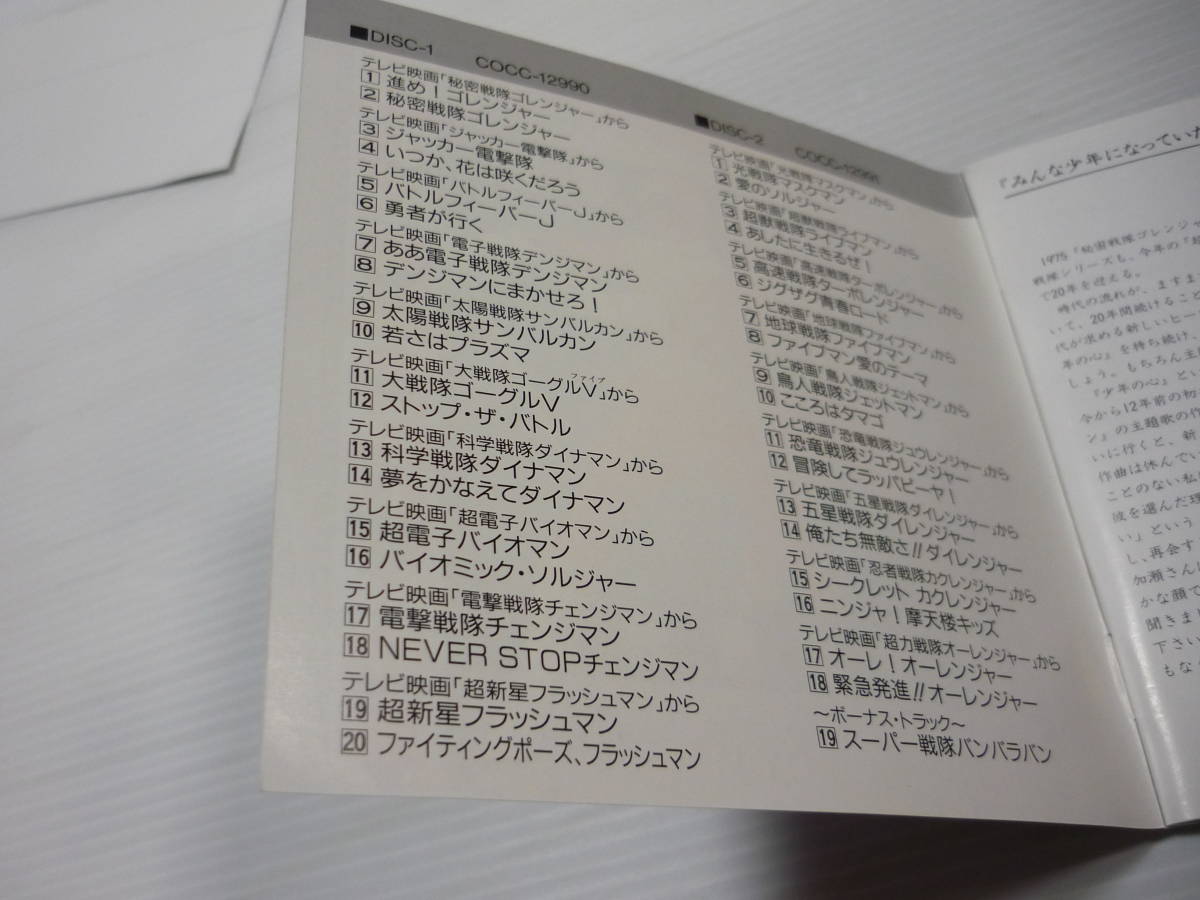 ■DISC-1 COCC-12990
テレビ映画「秘密戦隊ゴレンジャー」から
1 進め!ゴレンジャー
2 秘密戦隊ゴレンジャー
テレビ映画「ジャッカー電撃隊」から
3 ジャッカー電撃隊
4 いつか、花は咲くだろう
テレビ映画「バトルフィーバーJ」から
5 バトルフィーバーJ
6 勇者が行く
テレビ映画「電子戦隊デンジマン」から
7 ああ電子戦隊デンジマン
8 デンジマンにまかせろ!
テレビ映画「太陽戦隊サンバルカン」から
9 太陽戦隊サンバルカン
10 若さはプラズマ
ファイブ
テレビ映画「大戦隊ゴーグルV」から
11 大戦隊ゴーグルV
12 ストップ・ザ・バトル
テレビ映画「科学戦隊ダイナマン」から
13 科学戦隊ダイナマン
14 夢をかなえてダイナマン
テレビ映画「超電子バイオマン」から
15 超電子バイオマン
16 バイオミック・ソルジャー
テレビ映画「電撃戦隊チェンジマン」から
17 電撃戦隊チェンジマン
18 NEVER STOPチェンジマン
テレビ映画「超新星フラッシュマン」から
19 超新星フラッシュマン
20 ファイティングポーズ、フラッシュマン
■DISC-2 COCC-12991
テレビ映画「光戦隊マスクマン」から
1 光戦隊マスクマン
2 愛のソルジャー
テレビ映画「超獣戦隊ライブマン」から
3 超獣戦隊ライブマン
4 あしたに生きるぜ!
テレビ映画「高速戦隊ターボレンジャー」から
5 高速戦隊ターボレンジャー
6 ジグザグ青春ロード
テレビ映画「地球戦隊ファイブマン」から
7 地球戦隊ファイブマン
8 ファイブマン愛のテーマ
テレビ映画「鳥人戦隊ジェットマン」から
9 鳥人戦隊ジェットマン
10 こころはタマゴ
テレビ映画「恐竜戦隊ジュウレンジャー」から
11 恐竜戦隊ジュウレンジャー
12 冒険してラッパピーヤ!
テレビ映画「五星戦隊ダイレンジャー」から
13 五星戦隊ダイレンジャー
14 俺たち無敵さ!!ダイレンジャー
テレビ映画「忍者戦隊カクレンジャー」から
15 シークレット カクレンジャー
16 ニンジャ!摩天楼キッズ
テレビ映画「超力戦隊オーレンジャー」から
17 オーレ!オーレンジャー
18 緊急発進!!オーレンジャー
〜ボーナス・トラック〜
19 スーパー戦隊バンバラバン
『みんな少年になっていた
1975「秘密戦隊ゴレンジャ
戦隊シリーズも、今年の『
で20年を迎える。
時代の流れが、ますま
いて、20年間続けるこ
代が求める新しいヒー
年の心』を持ち続け、
しょう。もちろん主
『少年の心』とい
今から12年前の初
ン』の主題歌の
いに行くと、新
作曲は休んでい
ことのない私
彼を選んだ理
い」という
し、再会す
加瀬さんに
かな顔で
聞きま
下さい
もな